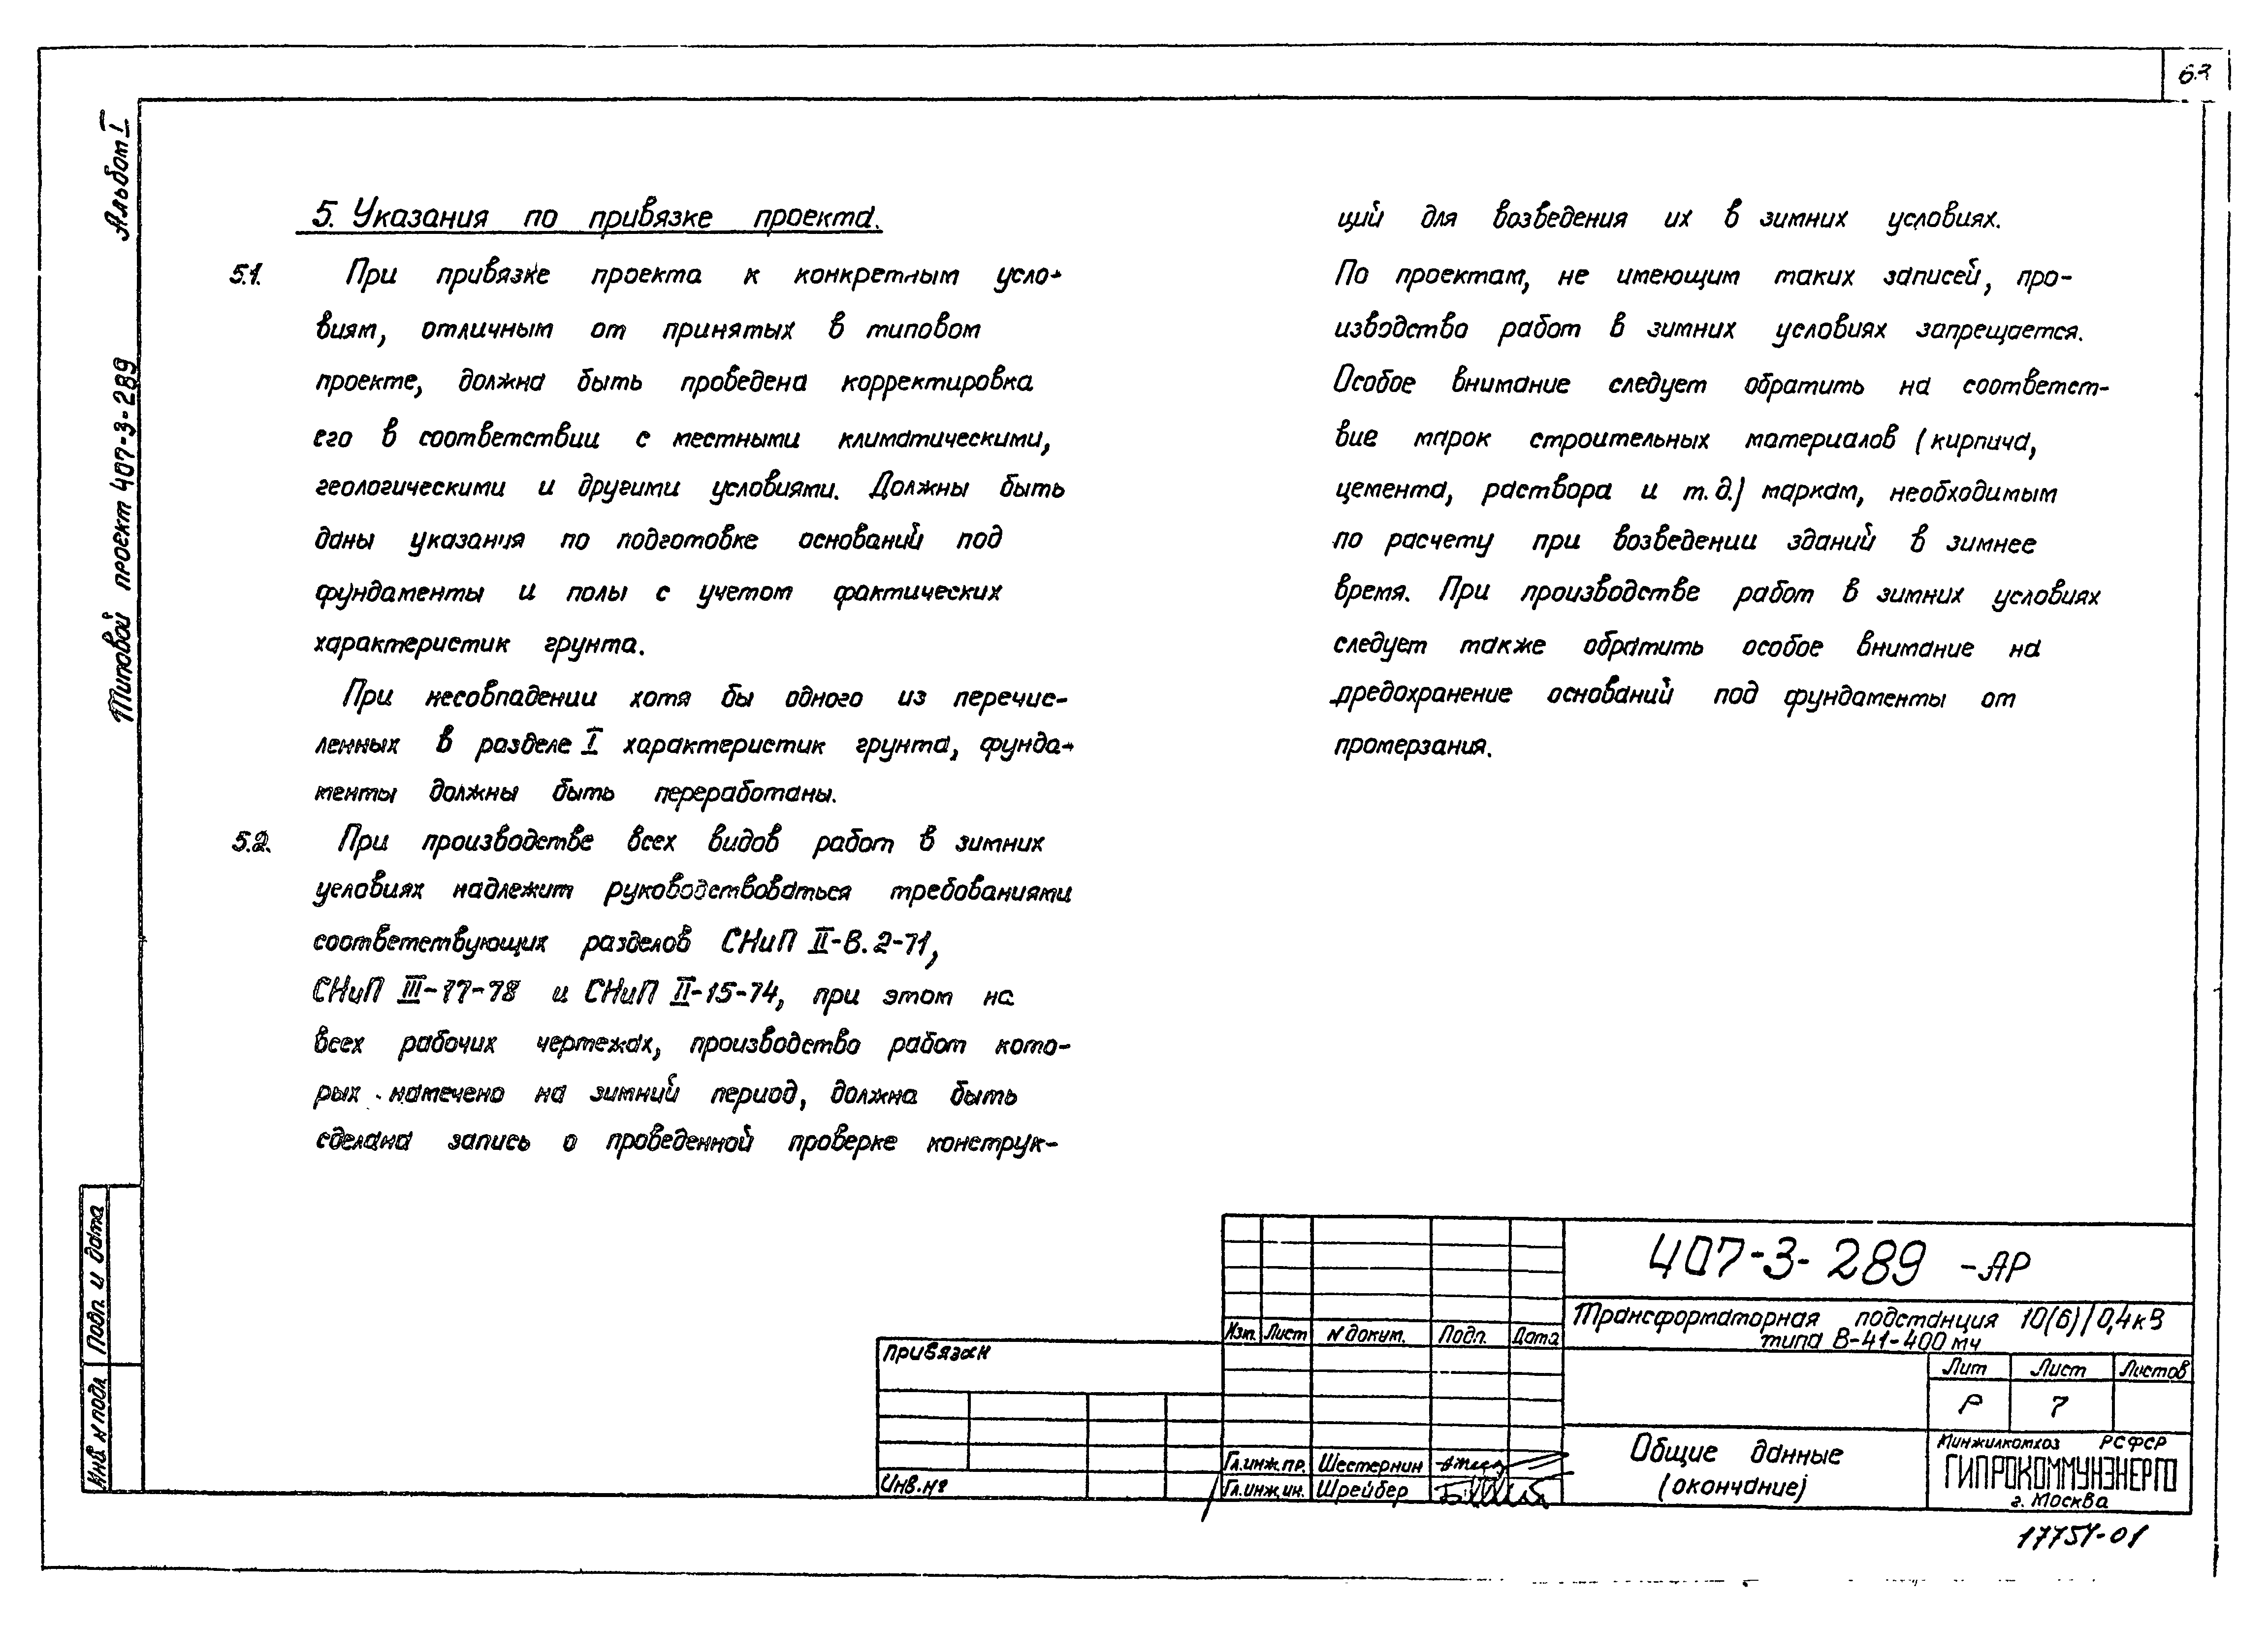 63
Альбом I
Типовой проект 407-3-289
5. Указания по привязке проекта.
5.1. При привязке проекта к конкретным усло-
виям, отличным от принятых в типовом
проекте, должна быть проведена корректировка
его в соответствии с местными климатическими,
геологическими и другими условиями. Должны быть
даны указания по подготовке оснований под
фундаменты и полы с учетом фактических
характеристик грунта.
При несовпадении хотя бы одного из перечис-
ленных в разделе I характеристик грунта, фунда-
менты должны быть переработаны.
5.2. При производстве всех видов работ в зимних
условиях надлежит руководствоваться требованиями
соответствующих разделов СНиП II-В.2-71,
СНиП III-17-78 и СНиП II-15-74, при этом на
всех рабочих чертежах, производство работ кото-
рых намечено на зимний период, должна быть
сделана запись о проведенной проверке конструк-
ций для возведения их в зимних условиях.
По проектам, не имеющим таких записей, про-
изводство работ в зимних условиях запрещается.
Особое внимание следует обратить на соответст-
вие марок строительных материалов (кирпича,
цемента, раствора и т.д.) маркам, необходимым
по расчету при возведении зданий в зимнее
время. При производстве работ в зимних условиях
следует также обратить особое внимание на
предохранение оснований под фундаменты от
промерзания.
Подп. и дата
Инв N подл
Привязан
Инв.№
Изм. Лист N докум. Подп. Дата
Гл.инж.пр. Шестернин
Гл.инж.ин. Шрейбер
407-3-289 -АР
Трансформаторная подстанция 10(6)/0,4кВ
типа В-41-400 м4
Лит Лист Листов
Р 7
Общие данные
(окончание)
Минжилкомхоз РСФСР
ГИПРОКОММУНЭНЕРГО
г. Москва
17754-01